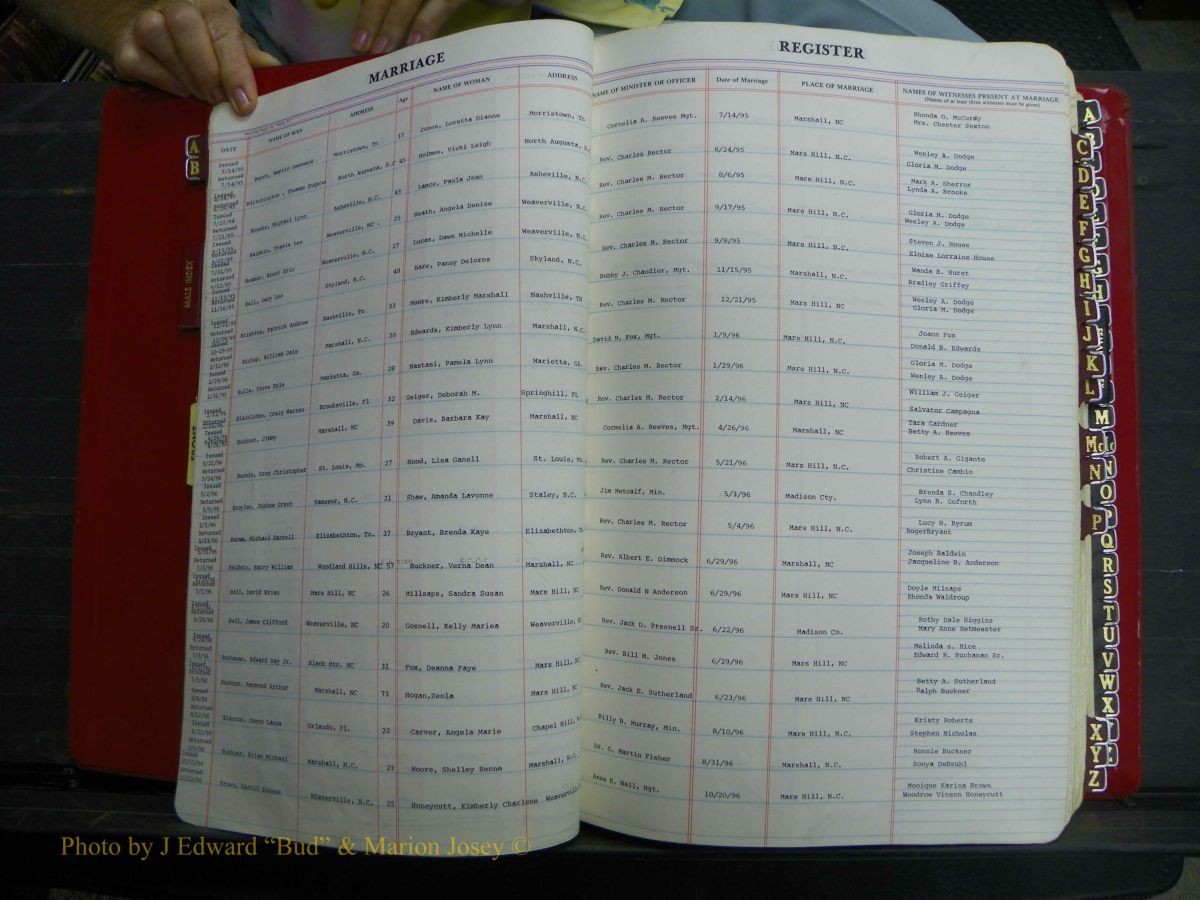 MARRIAGE
REGISTER
DATE NAME OF MAN ADDRESS Age NAME OF WOMAN ADDRESS NAME OF MINISTER OR OFFICER Date of Marriage PLACE OF MARRIAGE NAMES OF WITNESSES PRESENT AT MARRIAGE
(Names of at least three witnesses must be given)
Issued 7/14/95 Returned 7/14/95 Martin Leonard Morristown, Tn 37 Jones, Loretta Dianne Morristown, Tn Cornelia A. Reeves Mgt. 7/14/95 Marshall, NC Rhonda G. McCurdy
Mrs. Chester Sexton
Blitchington, Thomas Eugene North Augusta, S.C 45 Holmes, Vicki Leigh North Augusta, S.C Rev. Charles Rector 8/24/95 Mars Hill, N.C. Wesley A. Dodge
Gloria M. Dodge
Brooks, Michael Lynn Asheville, N.C. 43 Lance, Paula Jean Asheville, N.C. Rev. Charles M. Rector 8/6/95 Mars Hill, N.C. Mark A. Sherror
Lynda A. Brooks
Baldwin, Travis Lee Weaverville, NC. 25 Heath, Angela Denise Weaverville, N.C. Rev. Charles M. Rector 9/17/95 Mars Hill, N.C. Gloria M. Dodge
Wesley A. Dodge
Brent Eric Weaverville, N.C. 27 Lucas, Dawn Michelle Weaverville, N.C. Rev. Charles M. Rector 9/9/95 Mars Hill, N.C. Steven J. House
Eloise Lorraine House
Ball, Gary Lee Skyland, N.C. 48 Hare, Pansy Delores Skyland, N.C. Bobby J. Chandler, Mgt. 11/15/95 Marshall, N.C. Wanda B. Hurst
Bradley Griffey
Brighton, Patrick Andrew Nashville, Tn 33 Moore, Kimberly Marshall Nashville, TN Rev. Charles M. Rector 12/21/95 Mars Hill, NC Wesley A. Dodge
Gloria M. Dodge
Bishop, William Dale Marshall, N.C. 30 Edwards, Kimberly Lynn Marshall, N.C. David M. Fox, Mgt. 1/9/96 Mars Hill, N.C. Joann Fox
Donald B. Edwards
Steve Kyle Marietta, Ga. 28 Nastasi, Pamela Lynn Marietta, GA Rev. Charles M. Rector 1/29/96 Mars Hill, N.C. Gloria M. Dodge
Wesley A. Dodge
Blacklidge, Craig Warren Brooksville, Fl 32 Geiger, Deborah M. Springhill, FL Rev. Charles M. Rector 2/14/96 Mars Hill, NC William J. Geiger
Salvator Campagna
Buckner, Jimmy Marshall, NC 39 Davis, Barbara Kay Marshall, NC Cornelia A. Reeves, Mgt. 4/26/96 Marshall, NC Tara Gardner
Betty A. Reeves
Greg Christopher St. Louis, Mo. 27 Hood, Lisa Ganell St. Louis, Mo. Rev. Charles M. Rector 5/21/96 Mars Hill, N.C. Robert A. Gigante
Christine Cambio
Joshua Grant Ramseur, N.C. 21 Shaw, Amanda Lavonne Staley, N.C. Jim Metcalf, Min. 5/3/96 Madison Cty. Brenda S. Chandley
Lynn B. Goforth
Byrum, Michael Harrell Elizabethton, Tn. 37 Bryant, Brenda Kaye Elizabethton, Rev. Charles M. Rector 5/4/96 Mars Hill, N.C. Lucy H. Byrum
RogerBryant
Baldwin, Harry William Woodland Hills, NC 57 Buckner, Verna Dean Marshall, NC Rev. Albert E. Dimmock 6/29/96 Marshall, NC Joseph Baldwin
Jacqueline B. Anderson
Ball, David Brian Mars Hill, NC 26 Millsaps, Sandra Susan Mars Hill, NC Rev. Donald N Anderson 6/29/96 Mars Hill, NC Doyle Milsaps
Rhonda Waldroup
Bell, James Clifford Weaverville, NC 20 Gosnell, Kelly Mariea Weaverville, Rev. Jack D. Presnell Sr. 6/22/96 Madison Co. Rothy Dale Higgins
Mary Anne Retmeaster
Buchanan, Edward Ray Jr. Black Mtn. NC 31 Fox, Deanna Faye Mars Hill, NC Rev. Bill M. Jones 6/29/96 Mars Hill, NC Melinda s. Rice
Edward R. Buchanan Sr.
Buckner, Raymond Arthur Marshall, NC 73 Hogan,Zeola Mars Hill, NC Rev. Jack E. Sutherland 6/23/96 Mars Hill, NC Betty A. Sutherland
Ralph Buckner
Blanton, Jason Lance Orlando, Fl. 22 Carver, Angela Marie Chapel Hill, Billy B. Murray, Min. 8/10/96 Mars Hill, N.C. Kristy Roberts
Stephen Nicholas
Buckner, Brian Michael Marshall, N.C. 23 Moore, Shelley Renne Marshall, N.C. Dr. G. Martin Fisher 8/31/96 Marshall, N.C. Ronnie Buckner
Sonya DeBruhl
Brown, Harold Eugene Weaverville, N.C. 25 Honeycutt, Kimberly Charlene Weaverville Anna K. Wall, Mgt. 10/20/96 Mars Hill, N.C. Monique Karina Brown
Woodrow Vinson Honeycutt
A
B
MALE INDEX
FRONT
A
C
D
E
F
G
H
I
J
K
L
M
Mc
N
O
P
Q
R
S
T
U
V
W
X
XYZ
Photo by J Edward “Bud” & Marion Josey ©